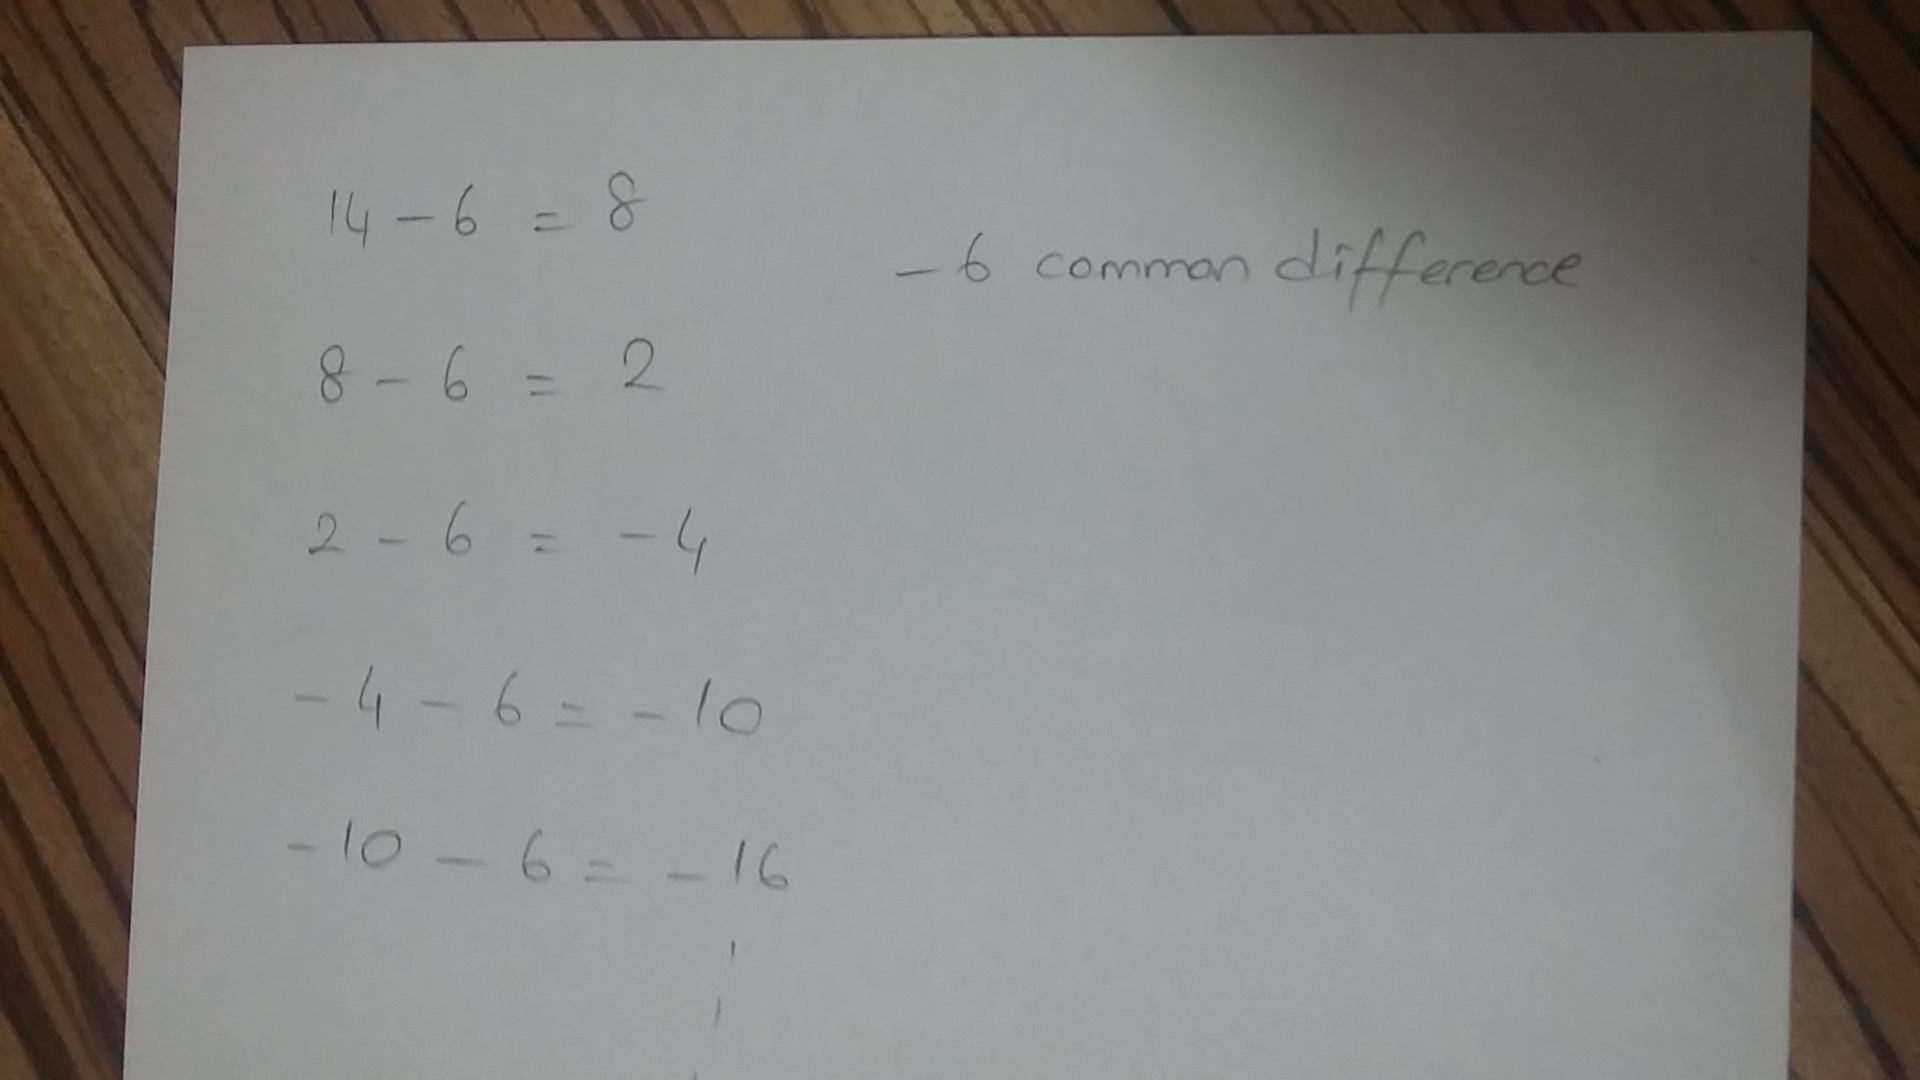 14 - 6 = 8
- 6 common difference
8 - 6 = 2
2 - 6 = - 4
- 4 - 6 = - 10
- 10 - 6 = - 16